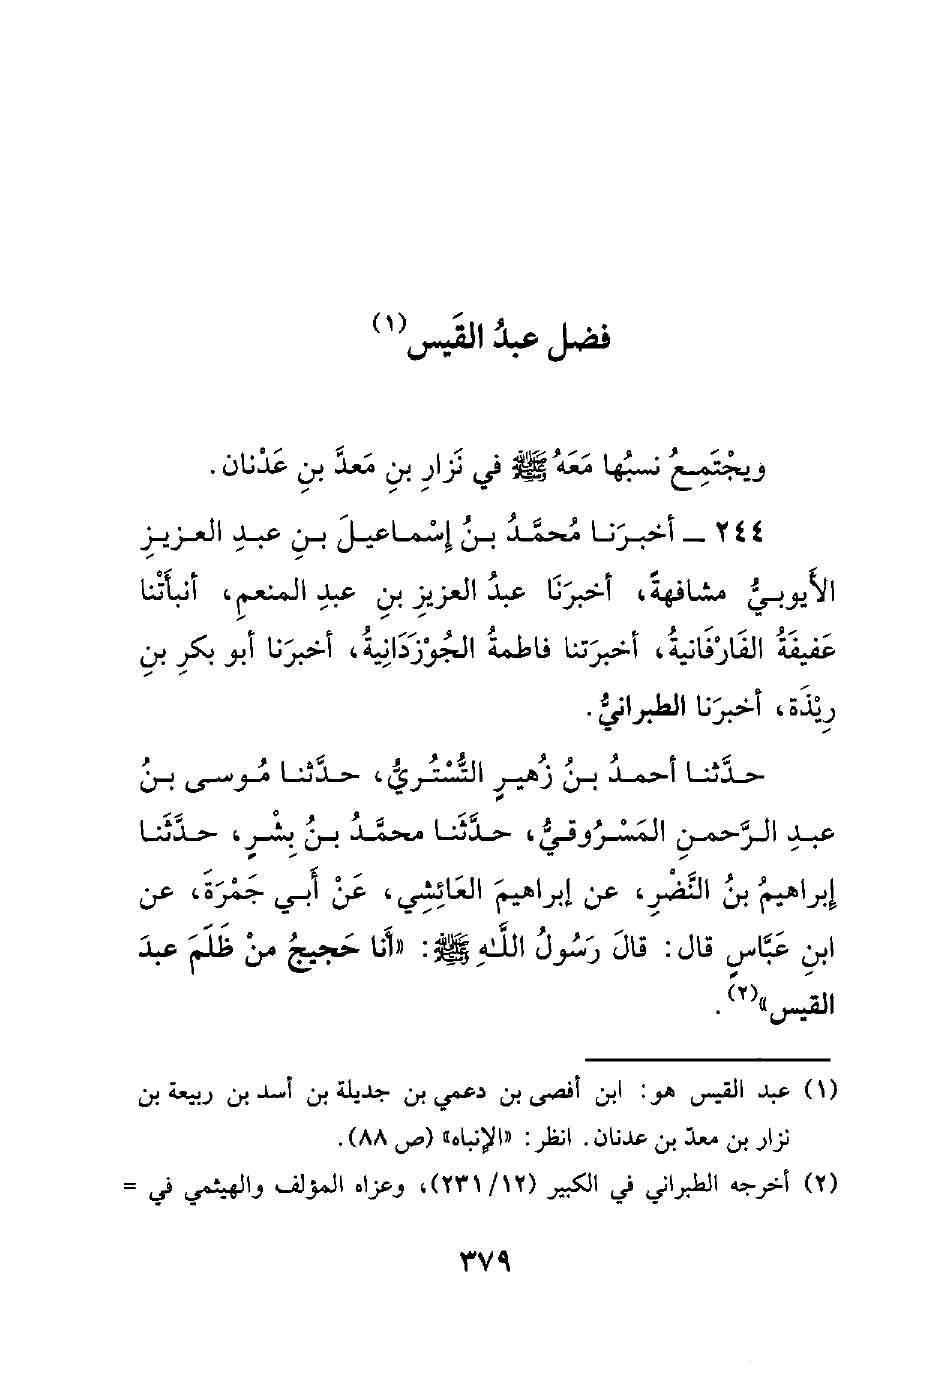 فضل عبدُ القَيس(١)
ويجْتَمِعُ نسبُها مَعَهُ ﷺ في نَزارِ بنِ مَعدَّ بنِ عَدْنان.
٢٤٤ ـ أخبرَنا مُحمَّدُ بنُ إسْماعيلَ بنِ عبدِ العزيزِ
الأَيوبيُّ مشافهةً، أخبرَنَا عبدُ العزيزِ بنِ عبدِ المنعمِ، أنبأَتْنا
عَفيفَةُ الفَارْفَانيةُ، أخبرَتنا فاطمةُ الجُوْزَدَانِيةُ، أخبرَنا أبو بكرِ بنِ
رِيْذَة، أخبرَنا الطبرانيُّ.
حدَّثنا أحمدُ بنُ زُهيرٍ التُّسْتُريُّ، حدَّثنا مُوسى بنُ
عبدِ الرَّحمنِ المَسْرُوقيُّ، حدَّثَنا محمَّدُ بنُ بِشْرٍ، حدَّثَنا
إِبراهيمُ بنُ النَّضْرِ، عن إبراهيمَ العَائِشي، عَنْ أَبي جَمْرَةَ، عن
ابنِ عَبَّاسٍ قال: قالَ رَسُولُ اللَّهِ ﷺ: «أَنا حَجيجُ منْ ظَلَمَ عبدَ
القيس»(٢).
(١) عبد القيس هو: ابن أفصى بن دعمي بن جديلة بن أسد بن ربيعة بن
نزار بن معدّ بن عدنان. انظر: «الإنباه» (ص ٨٨).
(٢) أخرجه الطبراني في الكبير (٢٣١/١٢)، وعزاه المؤلف والهيثمي في =
٣٧٩